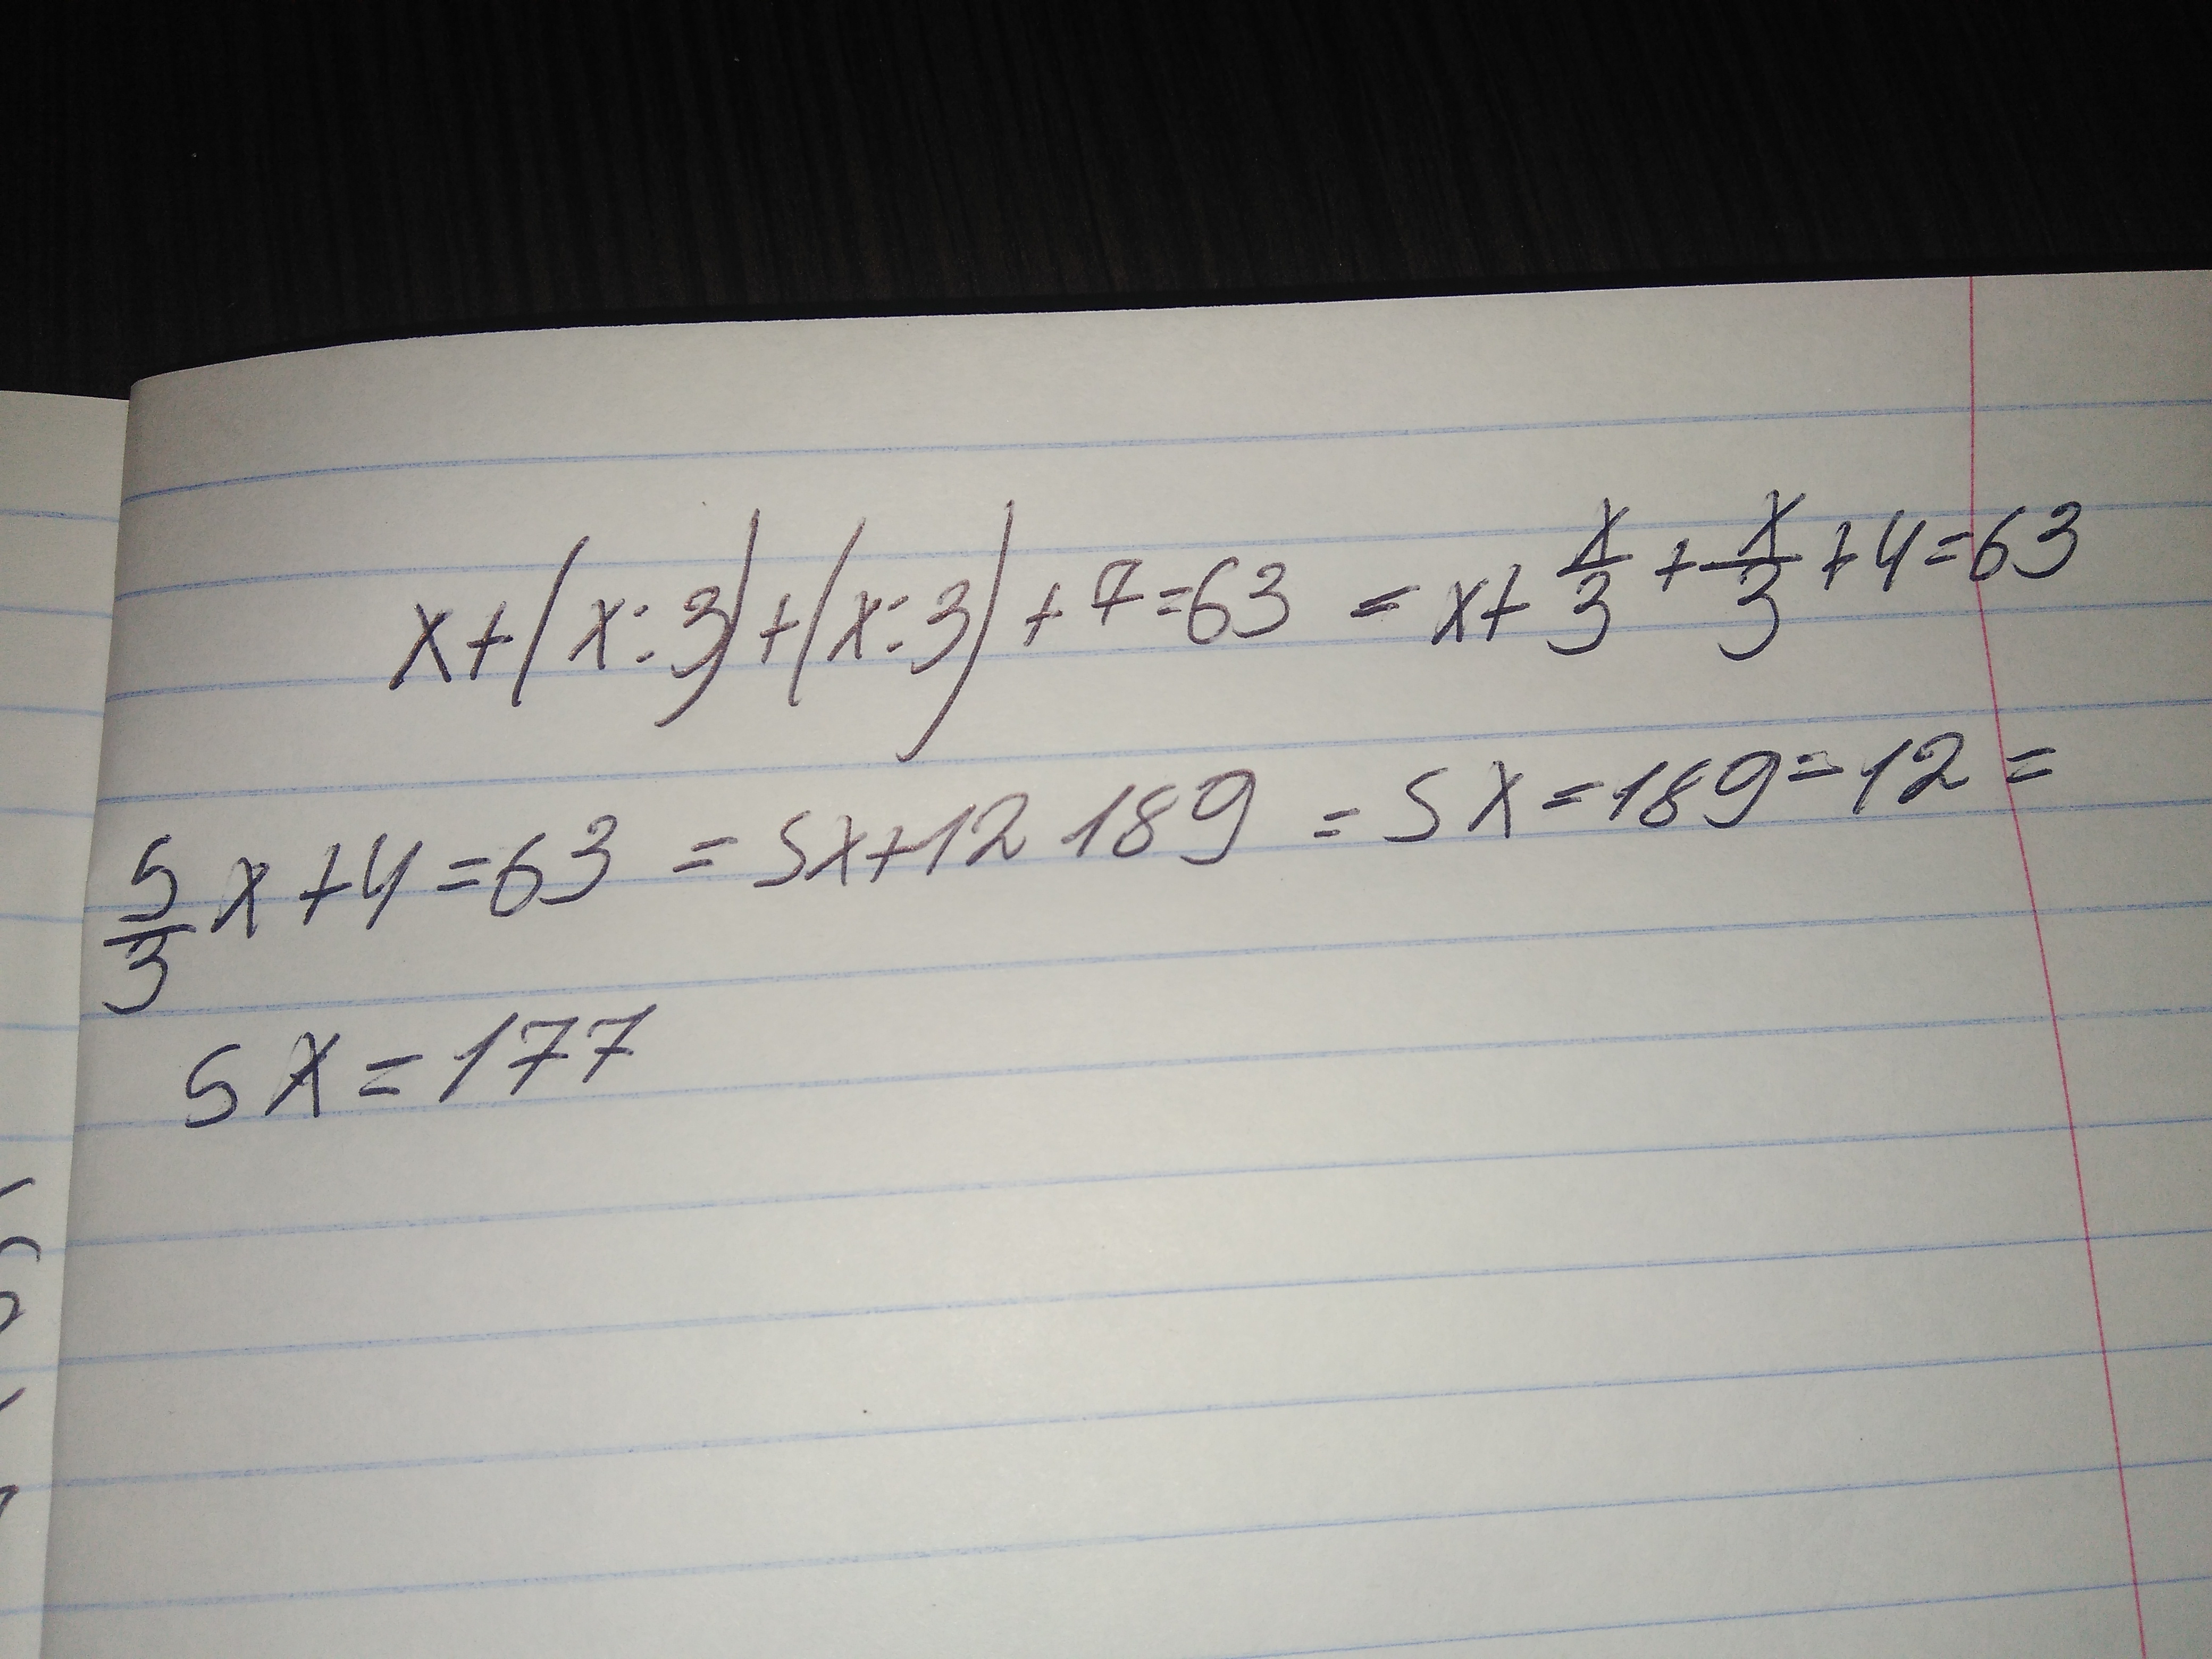 x+(x:3)+(x:3)+7=63 = x+x/3+x/3+4=63
5/3x+4=63 = 5x+12 189 = 5x=189=12=
5x=177